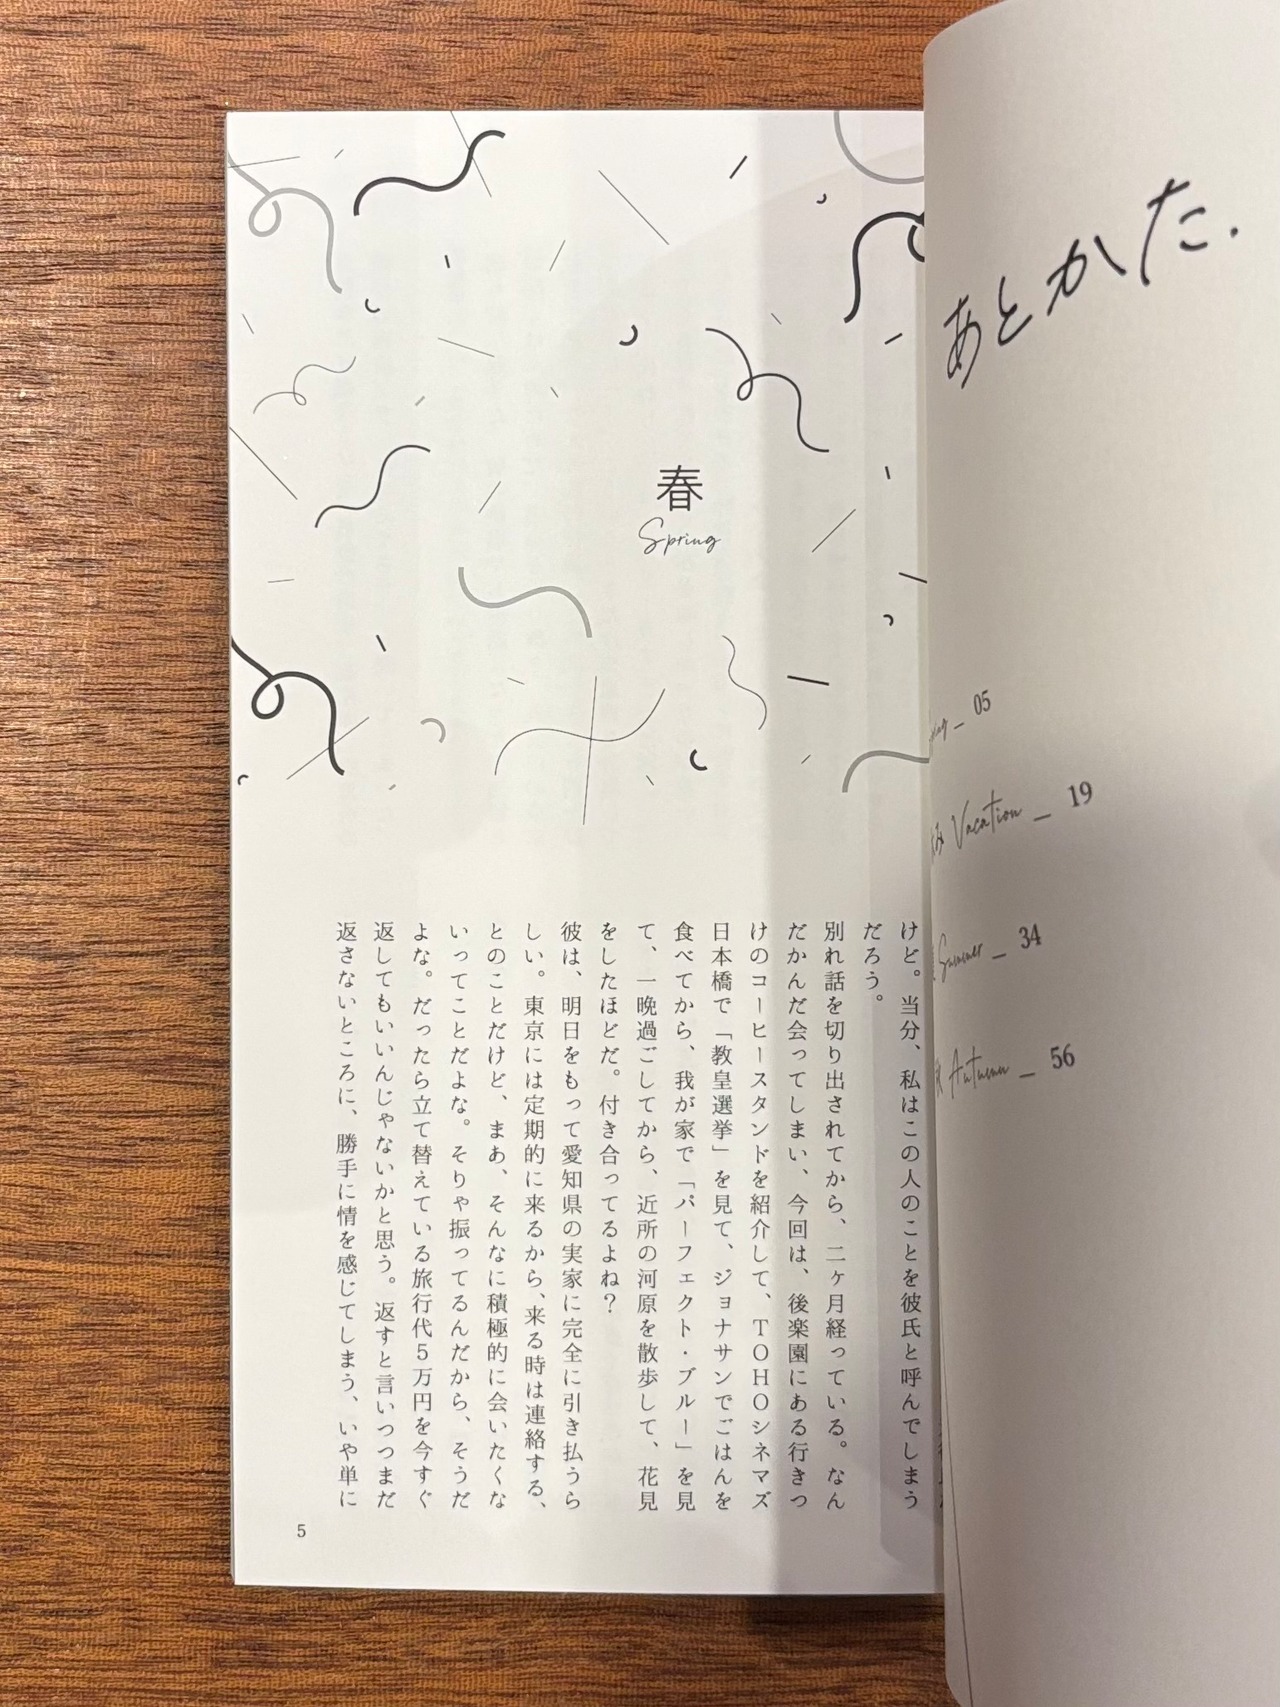 あとかた.
05
Vacation _ 19
Summer _ 34
Autumn _ 56
春
Spring
けど。当分、私はこの人のことを彼氏と呼んでしまう
だろう。
別れ話を切り出されてから、二ヶ月経っている。なん
だかんだ会ってしまい、今回は、後楽園にある行きつ
けのコーヒースタンドを紹介して、TOHOシネマズ
日本橋で「教皇選挙」を見て、ジョナサンでごはんを
食べてから、我が家で「パーフェクト・ブルー」を見
て、一晩過ごしてから、近所の河原を散歩して、花見
をしたほどだ。付き合ってるよね?
彼は、明日をもって愛知県の実家に完全に引き払うら
しい。東京には定期的に来るから、来る時は連絡する、
とのことだけど、まあ、そんなに積極的に会いたくな
いってことだよな。そりゃ振ってるんだから、そうだ
よな。だったら立て替えている旅行代5万円を今すぐ
返してもいいんじゃないかと思う。返すと言いつつまだ
返さないところに、勝手に情を感じてしまう、いや単に
5